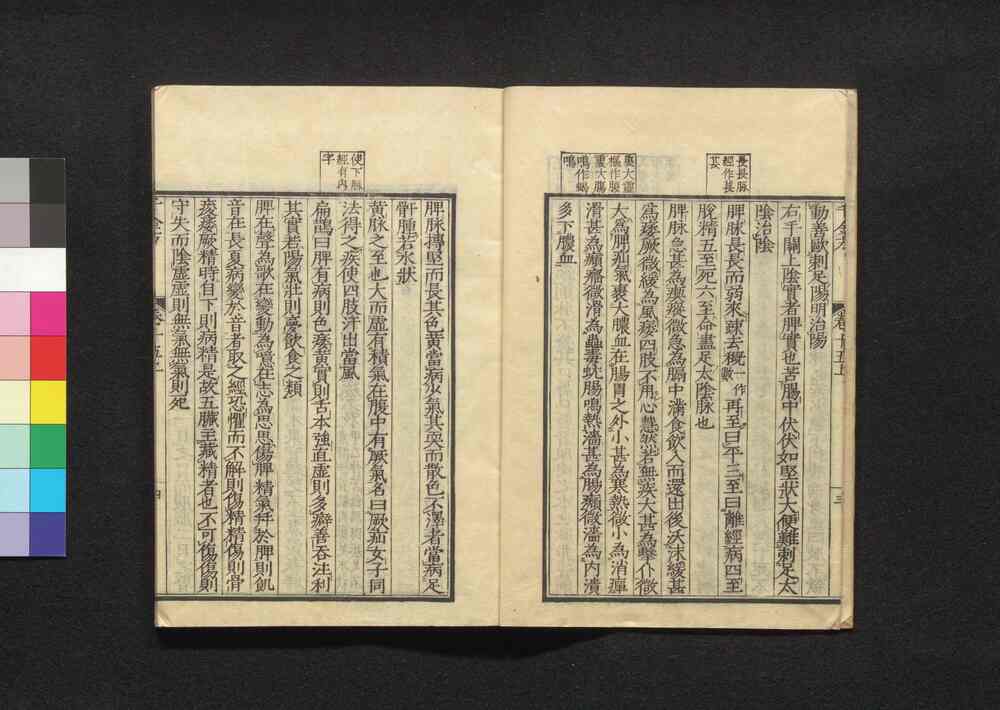 長長脉
經作長
甚
裏大靈
樞作膿
裏大腸
鳴作蝎
鳴
動善歐刺足陽明治陽
右手關上陰實者脾實也苦腸中伏伏如堅狀大便難刺足太
陰治陰
脾脉長長而弱來疎去穊一作數再至曰平三至曰離經病四至
脫精五至死六至命盡足太陰脉也
脾脉急甚為瘈瘲微急為膈中滿食飲入而還出後沃沫緩甚
為痿厥微緩為風痿四肢不用心慧然若無疾大甚為擊仆微
大為脾疝氣裹大膿血在腸胃之外小甚為寒熱微小為消癉
滑甚為㿗癃微滑為蟲毒蚘腸鳴熱濇甚為腸㿗微濇為內潰
多下膿血
使下脉
經有內
字
脾脉搏堅而長其色黃當病少氣其耎而散色不澤者當病足
骭腫若水狀
黃脉之至也大而虛有積氣在腹中有厥氣名曰厥疝女子同
法得之疾使四肢汗出當風
扁鵲曰脾有病則色痿黃實則舌本強直虛則多癖善吞注利
其實若陽氣壯則夢飲食之類
脾在聲為歌在變動為噫在志為思思傷脾精氣并於脾則飢
音在長夏病變於音者取之經恐懼而不解則傷精精傷則骨
痠痿厥精時自下則病精是故五臟主藏精者也不可傷傷則
守失而陰虛虛則無氣無氣則死